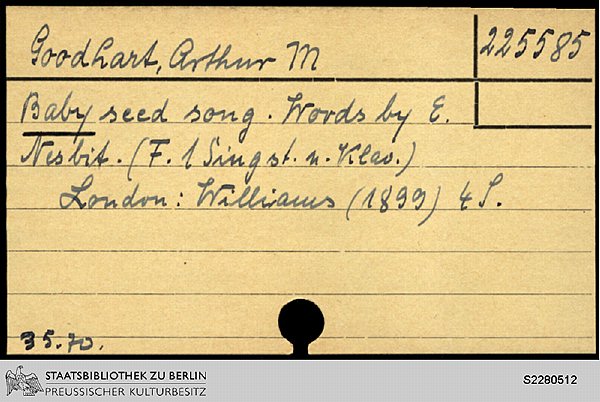 Goodhart, Arthur M
225585
Baby seed song. Words by E.
Nesbit. (F. 1 Singst. u. Klav.)
London: Williams (1899) 4 S.
35.70.
STAATSBIBLIOTHEK ZU BERLIN
PREUSSISCHER KULTURBESITZ
S2280512